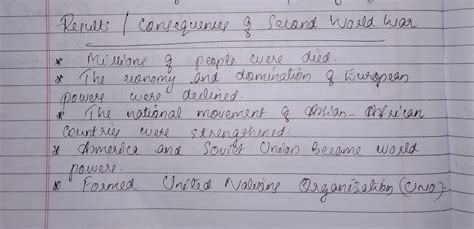 Results / Consequences of Second World War
* Millions of people were died.
* The economy and domination of European
powers were declined.
* The national movement of Asian - African
countries were strengthened.
* America and Soviet Union became world
powers.
* Formed United Nations Organisation (UNO)